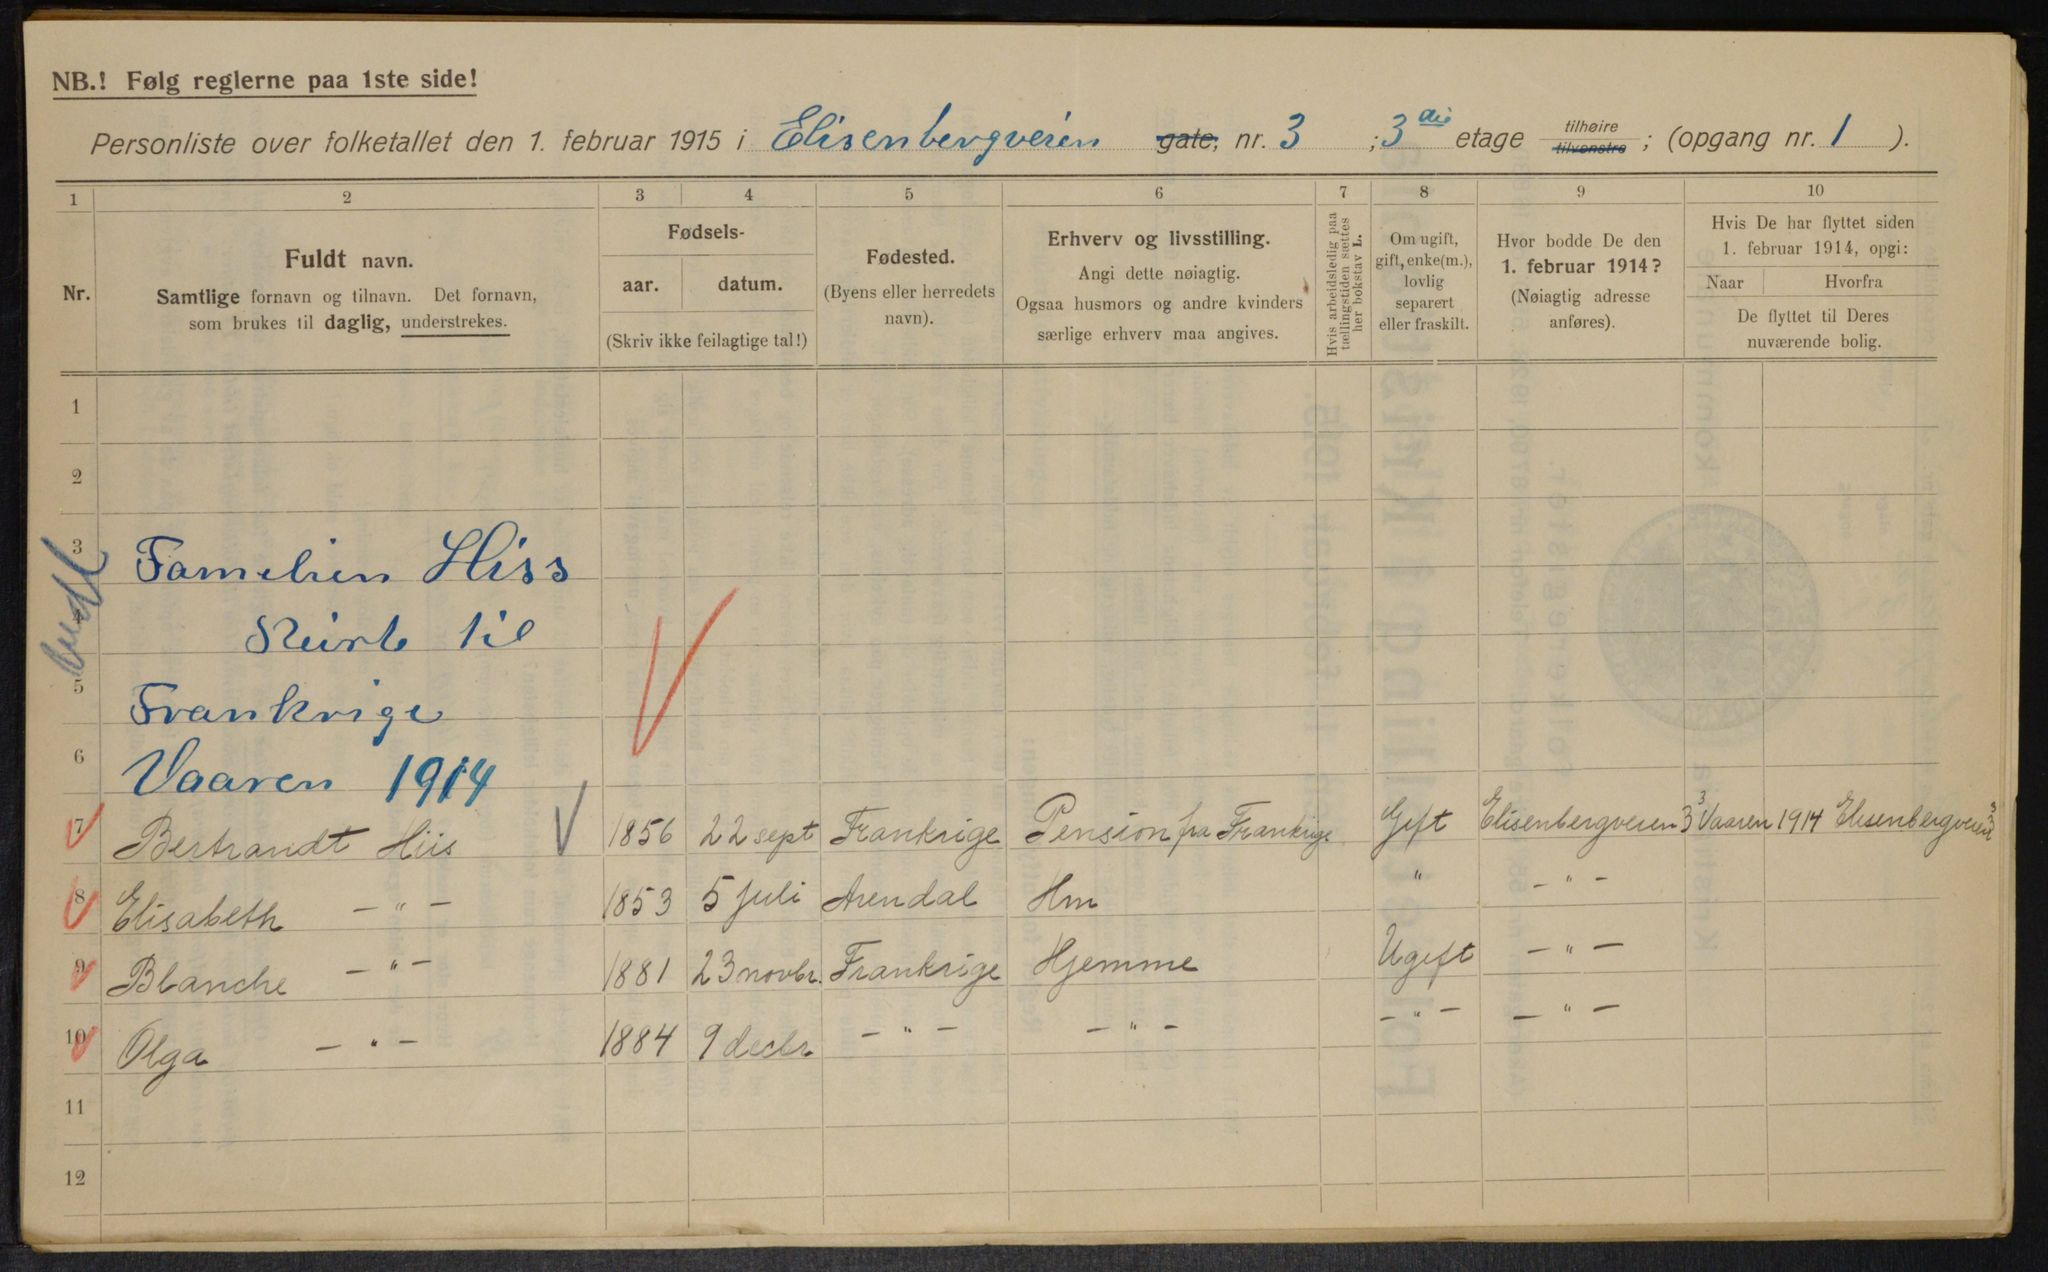 NB.! Følg reglerne paa 1ste side!
Personliste over folketallet den 1. februar 1915 i Elisenbergveien gate, nr. 3 ; 3die etage tilhøire tilvenstre ; (opgang nr. 1 ).
1 2 3 4 5 6 7 8 9 10
Nr.
Fuldt navn.
Samtlige fornavn og tilnavn. Det fornavn,
som brukes til daglig, understrekes.
Fødsels-
aar. datum.
(Skriv ikke feilagtige tal!)
Fødested.
(Byens eller herredets
navn).
Erhverv og livsstilling.
Angi dette nøiagtig.
Ogsaa husmors og andre kvinders
særlige erhverv maa angives.
Hvis arbeidsledig paa
tællingstiden sættes
her bokstav L.
Om ugift,
gift, enke(m.),
lovlig
separert
eller fraskilt.
Hvor bodde De den
1. februar 1914?
(Nøiagtig adresse
anføres).
Hvis De har flyttet siden
1. februar 1914, opgi:
Naar Hvorfra
De flyttet til Deres
nuværende bolig.
1
2
3 Familien Hiss
4 til
5 Frankrige
6 Vaaren 1914
7 Bertrandt Hiis 1856 22 sept Frankrige Pension fra Frankrige Geft Elisenbergveien 3 3 Vaaren 1914 Elisenbergveien 3
8 Elisabeth — " — 1853 5 juli Arendal Hm " — " —
9 Blanche — " — 1881 23 novbr. Frankrige Hjemme Ugeft — " —
10 Olga — " — 1884 9 decbr — " — — " — — " — — " —
11
12